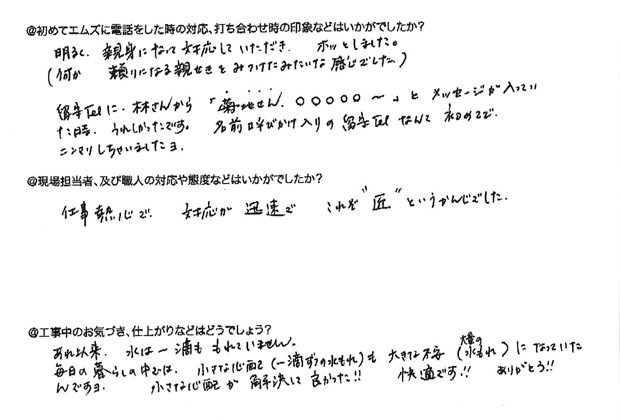 @初めてエムズに電話をした時の対応、打ち合わせ時の印象などはいかがでしたか?
明るく、親身になって対応していただき、ホッとしました。
(何か 頼りになる親せきとみつけたみたいな感じでした)
留守Telに、林さんから「菊地さん、○○○○○~」とメッセージが入ってい
た時、うれしかったです。名前呼びかけ入りの留守Telなんて初めてで、
ニンマリしちゃいましたヨ。
@現場担当者、及び職人の対応や態度などはいかがでしたか?
仕事熱心で、対応が迅速で これぞ"匠"というかんじでした。
@工事中のお気づき、仕上がりなどはどうでしょう?
あれ以来、水は一滴ももれていません。
毎日の暮らしの中では、小さな心配(一滴ずつの水もれ)も大きな不安(大量の水もれ)になっていた
んですヨ。 小さな心配が解決して良かった!! 快適です!! ありがとう!!